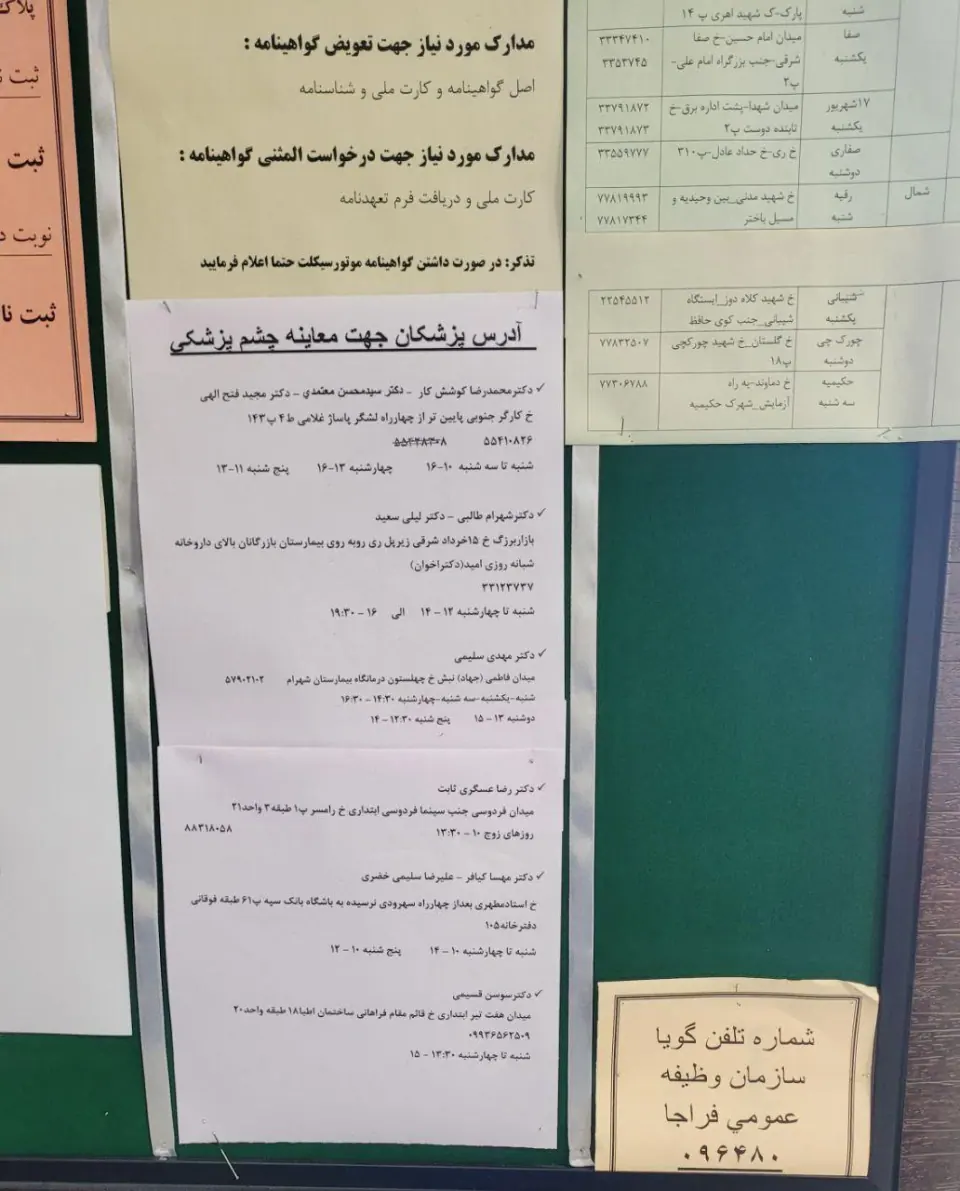 پلاک
ثبت
ثبت
نوبت
ثبت
مدارک مورد نیاز جهت تعویض گواهینامه :
اصل گواهینامه و کارت ملی و شناسنامه
مدارک مورد نیاز جهت درخواست المثنی گواهینامه :
کارت ملی و دریافت فرم تعهدنامه
تذکر: در صورت داشتن گواهینامه موتورسیکلت حتما اعلام فرمایید
شنبه پارک-ک شهید اهری پ ۱۴
صفا میدان امام حسین-خ صفا ۳۳۳۴۷۴۱۰
یکشنبه شرقی-جنب بزرگراه امام علی- ۳۳۵۳۷۴۵
پ۲
۱۷شهریور میدان شهدا-پشت اداره برق-خ ۳۳۷۹۱۸۷۲
یکشنبه تابنده دوست پ۲ ۳۳۷۹۱۸۷۳
صفاری خ ری-خ حداد عادل-پ۳۱۰ ۳۳۵۵۹۷۷۷
دوشنبه
شمال رقیه خ شهید مدنی_بین وحیدیه و ۷۷۸۱۹۹۹۳
شنبه مسیل باختر ۷۷۸۱۷۳۴۴
شیبانی خ شهید کلاه دوز_ایستگاه ۲۲۵۴۵۵۱۲
یکشنبه شیبانی_جنب کوی حافظ
چورک چی خ گلستان_خ شهید چورکچی ۷۷۸۳۲۵۰۷
دوشنبه پ۱۸
حکیمیه خ دماوند-به راه ۷۷۳۰۶۷۸۸
سه شنبه آزمایش_شهرک حکیمیه
آدرس پزشکان جهت معاینه چشم پزشکی
✓ دکترمحمدرضا کوشش کار - دکتر سیدمحسن معتمدی - دکتر مجید فتح الهی
خ کارگر جنوبی پایین تر از چهارراه لشگر پاساژ غلامی ط۴ پ۱۴۳
۵۵۴۱۰۸۲۶ ۵۵۴۴۸۴۰۸
شنبه تا سه شنبه ۱۰-۱۶ چهارشنبه ۱۳-۱۶ پنج شنبه ۱۱-۱۳
✓ دکترشهرام طالبی - دکتر لیلی سعید
بازاربزرگ خ ۱۵خرداد شرقی زیرپل ری روبه روی بیمارستان بازرگانان بالای داروخانه
شبانه روزی امید(دکتراخوان)
۳۳۱۲۳۷۳۷
شنبه تا چهارشنبه ۱۲ - ۱۴ الی ۱۶ - ۱۹:۳۰
✓ دکتر مهدی سلیمی
میدان فاطمی (جهاد) نبش خ چهلستون درمانگاه بیمارستان شهرام ۵۷۹۰۲۱۰۲
شنبه-یکشنبه-سه شنبه-چهارشنبه ۱۴:۳۰ - ۱۶:۳۰
دوشنبه ۱۳ - ۱۵ پنج شنبه ۱۲:۳۰ - ۱۴
✓ دکتر رضا عسگری ثابت
میدان فردوسی جنب سینما فردوسی ابتداری خ رامسر پ۱ طبقه۳ واحد۲۱
روزهای زوج ۱۰ - ۱۳:۳۰ ۸۸۳۱۸۰۵۸
✓ دکتر مهسا کیافر - علیرضا سلیمی خضری
خ استادمطهری بعداز چهارراه سهرودی نرسیده به باشگاه بانک سپه پ۶۱ طبقه فوقانی
دفترخانه۱۰۵
شنبه تا چهارشنبه ۱۰ - ۱۴ پنج شنبه ۱۰ - ۱۲
✓ دکترسوسن قسیمی
میدان هفت تیر ابتداری خ قائم مقام فراهانی ساختمان اطبا۱۸ طبقه واحد۲۰
۰۹۹۳۶۵۶۲۵۰۹
شنبه تا چهارشنبه ۱۳:۳۰ - ۱۵
شماره تلفن گویا
سازمان وظیفه
عمومي فراجا
۰۹۶۴۸۰